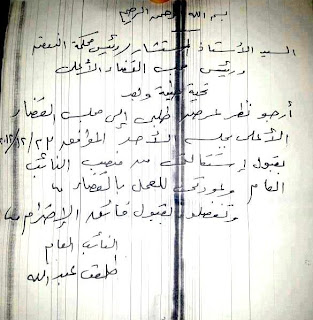 بسم الله الرحمن الرحيم
السيد الأستاذ المستشار / رئيس محكمة النقض
ورئيس مجلس القضاء الأعلى
تحية طيبة وبعد
أرجو نظر لعرض طلبى إلى مجلس القضاء
الأعلى بجلسة الأحد الموافق ٢٠١٢/١٢/٢٣
لقبول إستقالتى من منصب النائب
العام وعودتى للعمل بالقضاء
وتفضلوا بقبول فائق الإحترام
النائب العام
طلعت عبد الله